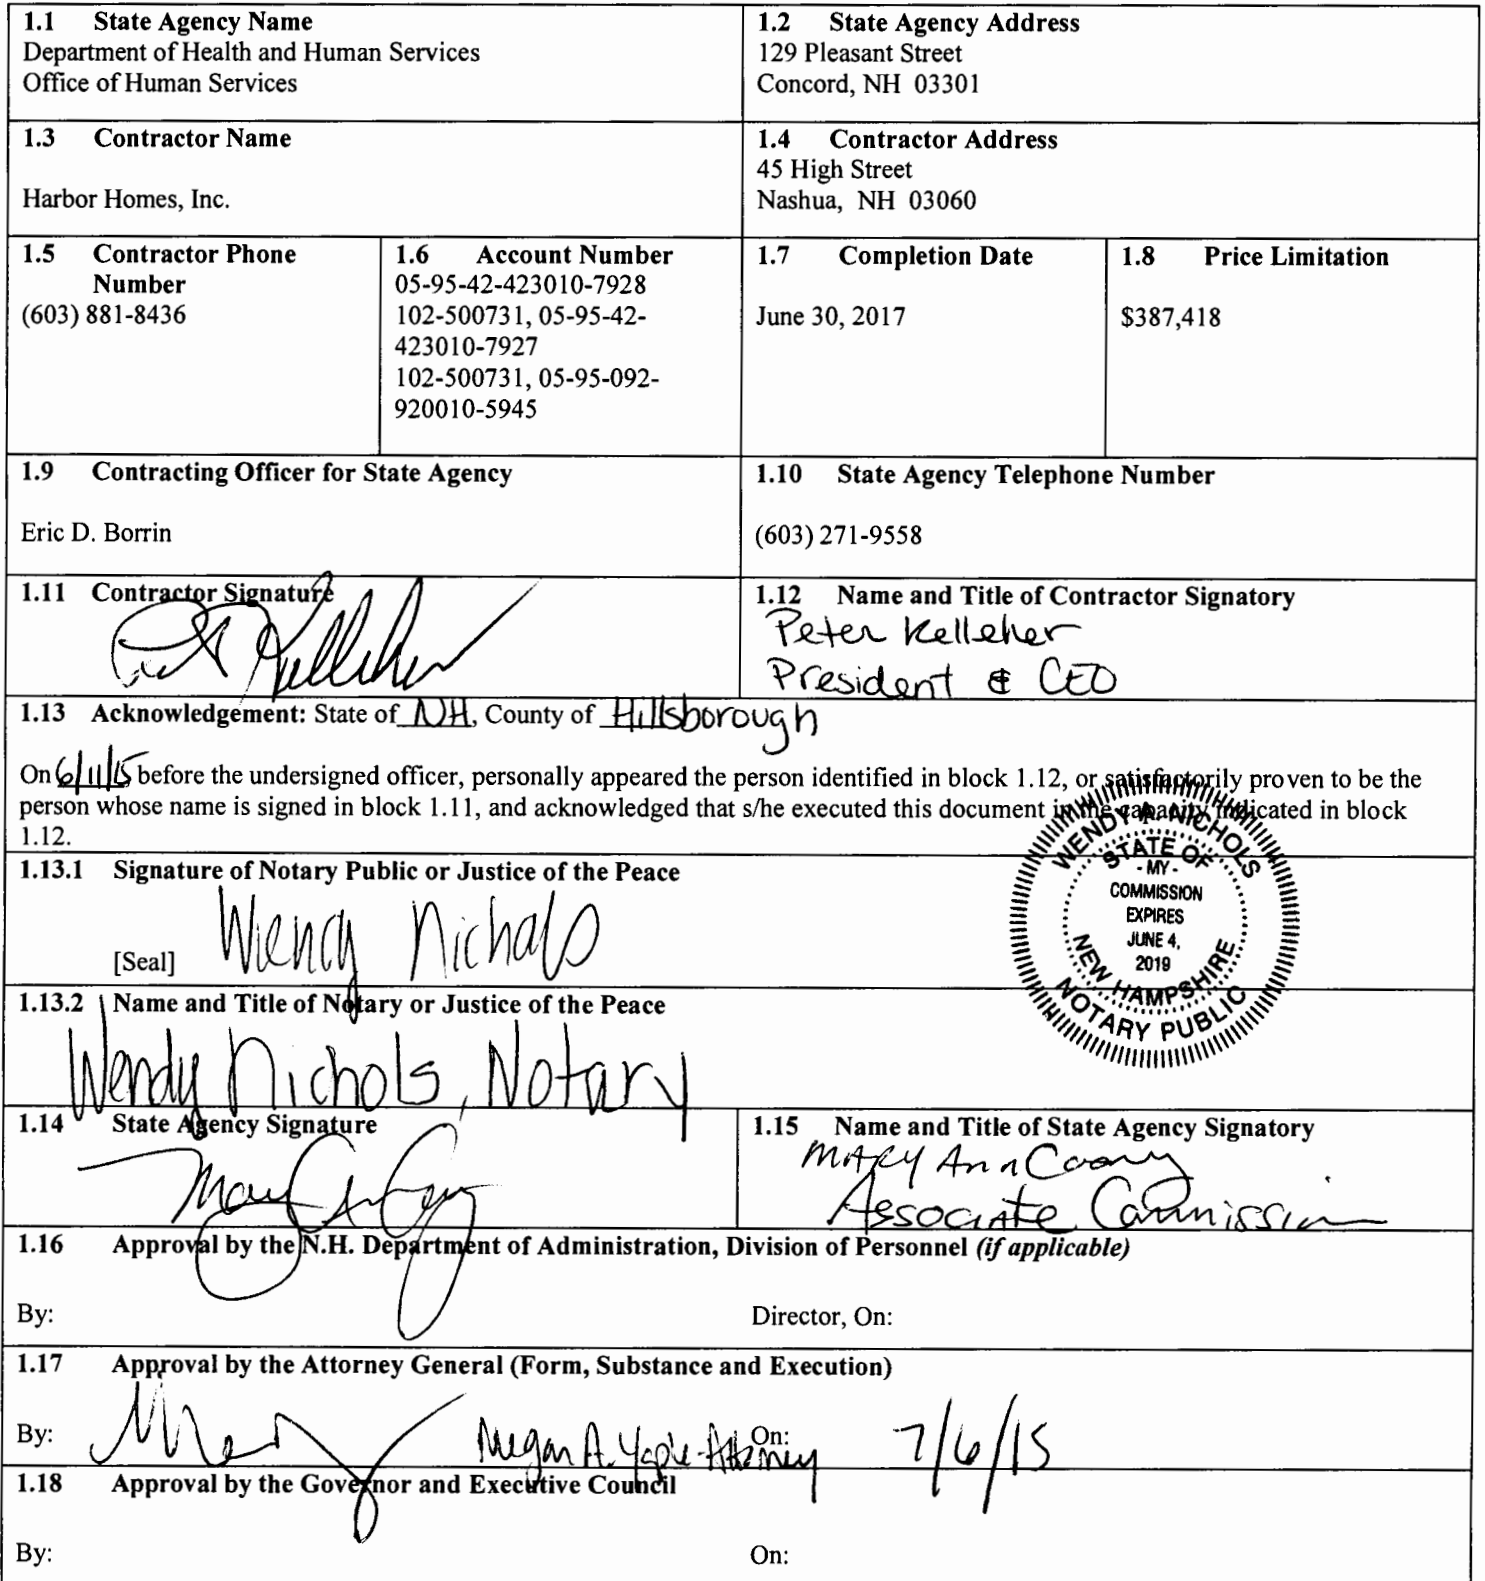 1.1 State Agency Name
Department of Health and Human Services
Office of Human Services
1.2 State Agency Address
129 Pleasant Street
Concord, NH 03301
1.3 Contractor Name
Harbor Homes, Inc.
1.4 Contractor Address
45 High Street
Nashua, NH 03060
1.5 Contractor Phone
Number
(603) 881-8436
1.6 Account Number
05-95-42-423010-7928
102-500731, 05-95-42-
423010-7927
102-500731, 05-95-092-
920010-5945
1.7 Completion Date
June 30, 2017
1.8 Price Limitation
$387,418
1.9 Contracting Officer for State Agency
Eric D. Borrin
1.10 State Agency Telephone Number
(603) 271-9558
1.11 Contractor Signature
1.12 Name and Title of Contractor Signatory
Peter Kelleher
President & CEO
1.13 Acknowledgement: State of NH, County of Hillsborough
On 6/11/15 before the undersigned officer, personally appeared the person identified in block 1.12, or satisfactorily proven to be the
person whose name is signed in block 1.11, and acknowledged that s/he executed this document in the capacity indicated in block
1.12.
1.13.1 Signature of Notary Public or Justice of the Peace
[Seal] Wendy Nichols
WENDY A. NICHOLS
STATE OF
- MY -
COMMISSION
EXPIRES
JUNE 4,
2019
NEW HAMPSHIRE
NOTARY PUBLIC
1.13.2 Name and Title of Notary or Justice of the Peace
Wendy Nichols, Notary
1.14 State Agency Signature
1.15 Name and Title of State Agency Signatory
Mary Ann Cooney
Associate Commissioner
1.16 Approval by the N.H. Department of Administration, Division of Personnel (if applicable)
By: Director, On:
1.17 Approval by the Attorney General (Form, Substance and Execution)
By: Megan A. Yaple-Attorney On: 7/6/15
1.18 Approval by the Governor and Executive Council
By: On: